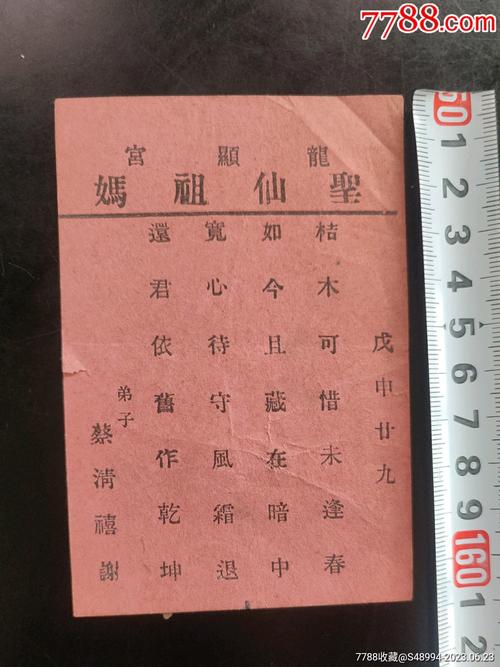 7788.com
龍顯宮
聖仙祖媽
戊申廿九
桔木可惜未逢春
如今且藏在暗中
寬心待守風霜退
還君依舊作乾坤
弟子蔡清禧謝
50
1
2
3
4
5
6
7
8
9
160
1
2
7788收藏@S48994-2023.06.23